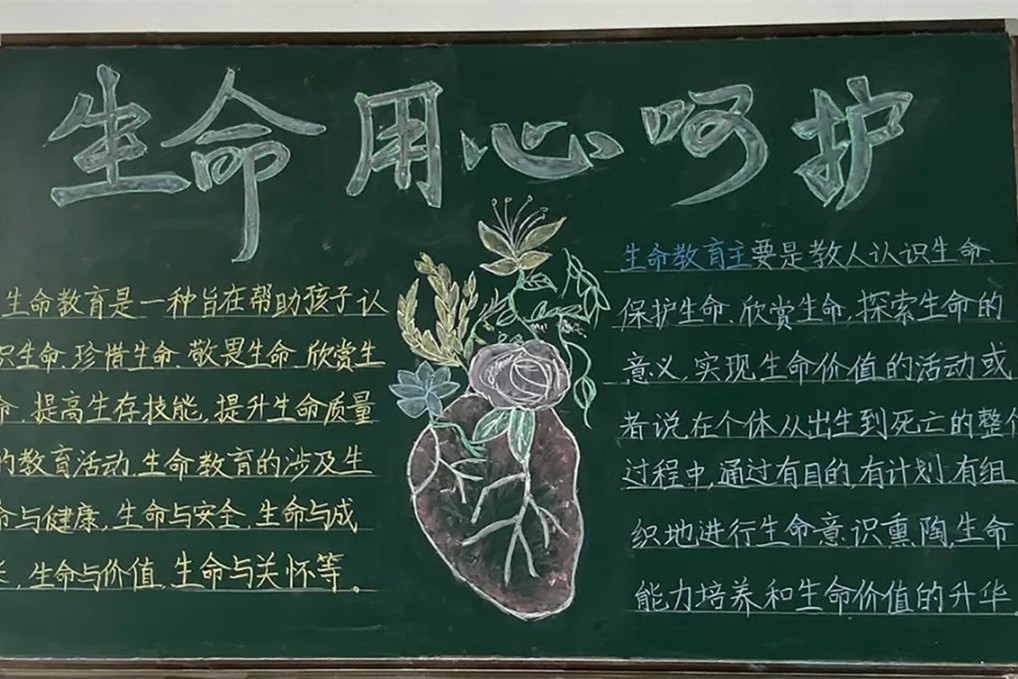 生命用心呵护
生命教育是一种旨在帮助孩子认
识生命、珍惜生命、敬畏生命、欣赏生
命,提高生存技能,提升生命质量
的教育活动.生命教育的涉及生
命与健康,生命与安全,生命与成
长,生命与价值,生命与关怀等。
生命教育主要是教人认识生命、
保护生命、欣赏生命,探索生命的
意义,实现生命价值的活动或
者说在个体从出生到死亡的整个
过程中,通过有目的,有计划,有组
织地进行生命意识熏陶,生命
能力培养和生命价值的升华